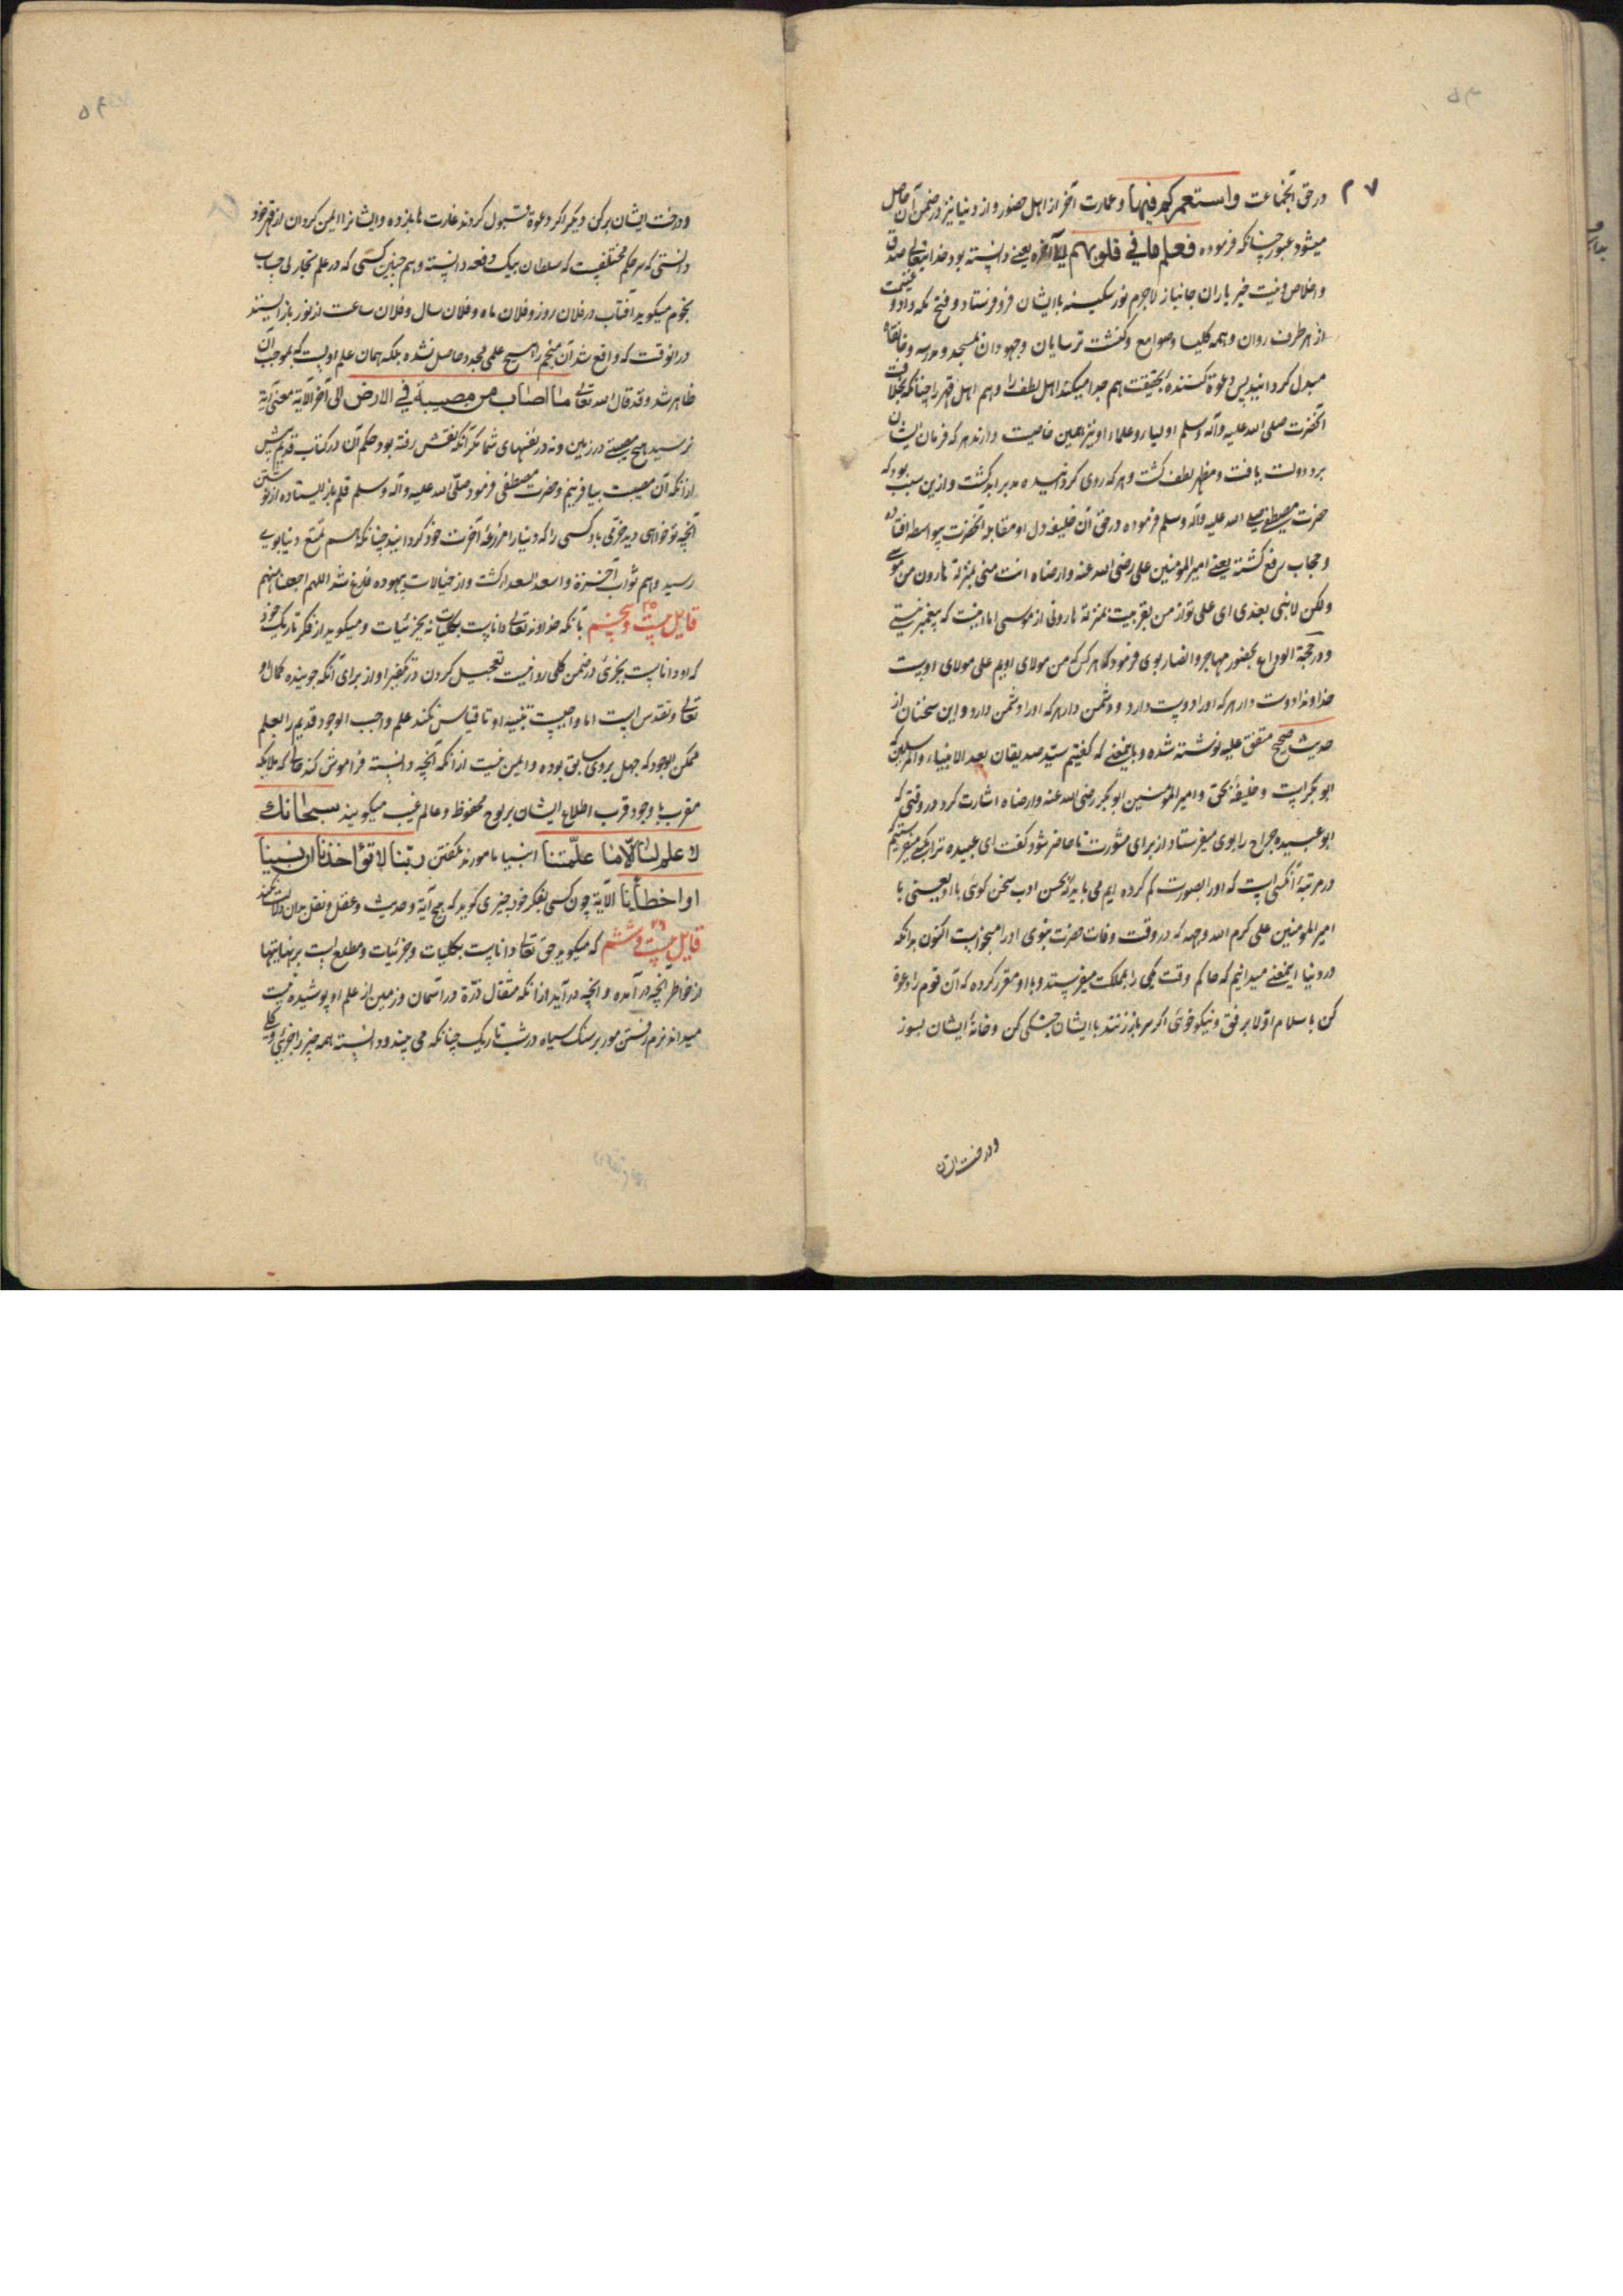 در حق آنجماعت واستعمرکم فیها وعمارت آخر از اهل حضور و از دنیا نیز در ضمن آن حاصل
میشود عبور چنانکه فرموده فعلم ما فی قلوبهم الآخره یعنی دانسته بود خدایتعالی صدق
واخلاص ونیت خیر یاران جانباز لاجرم نور سکینه با ایشان فرو فرستاد و فتح مکه داد و غنیمت
از هر طرف روان وهمه کلیسا وصوامع وکنشت ترسایان وجهودان بمسجد ومدرسه وخانقاه
مبدل کردانید پس دعوة کننده بحقیقت هم جدا میکند اهل لطف را وهم اهل قهر را چنانکه بخلافت
آنحضرت صلی الله علیه وآله وسلم اولیا وعلماء او نیز همین خاصیت دارند هر که فرمان ایشان
برد دولت یافت ومظهر لطف کشت وهر که روی کردانیده مدبر ابد کشت و ازین سبب بود که
حضرت مصطفی صلی الله علیه وآله وسلم فرموده در حق آن خلیفه دل او مقابله آنحضرت بیواسطه افتاده
وحجاب رفع کشته یعنی امیرالمومنین علی رضی الله عنه وارضاه انت منی بمنزلة هارون من موسی
ولکن لا نبی بعدی ای علی تو از من بقربیت بمنزلة هارونی از موسی اما اینست که پیغمبر نیستی
ودر حجة الوداع بحضور مهاجر وانصار بوی فرمود که هر کس که من مولای اویم علی مولای اویست
خداوندا دوست دار هر که او را دوست دارد ودشمن دار هر که او را دشمن دارد و این سخنان از
حدیث صحیح متفق علیه نوشته شده وباینمعنی که کفتیم سید صدیقان بعد الانبیاء والمرسلین که
ابوبکر است وخلیفۀ بحق وامیرالمومنین ابوبکر رضی الله عنه وارضاه اشارت کرد در وقتی که
ابوعبیده جراح را بوی میفرستاد از برای مشورت تا حاضر شود کفت ای عبیده ترا بکسی میفرستیم
در مرتبۀ آنکسی است که او را بصورت کم کرده ایم می باید که بحسن ادب سخن کوئی با او یعنی با
امیرالمومنین علی کرم الله وجهه که در وقت وفات حضرت نبوی او را میخواست اکنون بدانکه
در دنیا اینمعنی میدانیم که حاکم وقت یکی را بمملکت میفرستد وبا او مقرر کرده که آن قوم را دعوة
کن باسلام اولا برفق ونیکو خوئی اکر سر باز زنند با ایشان جنکی کن وخانۀ ایشان بسوز
ودرخت ایشان
ودرخت ایشان برکن ودیکر اکر دعوة قبول کردند غارت ها باز ده وایشانرا ایمن کردان از قهر خود
دانستی که هر حکم مختلفیست که سلطان بیک دفعه دانسته وهم چنین کسی که در علم نجار لی حساب
نجوم میکوید آفتاب در فلان روز وفلان ماه وفلان سال وفلان ساعت از نور باز ایستد
در آنوقت که واقع شد آن منجم را هیچ علمی مجدد حاصل نشده بلکه همان علم اولست که بموجب آن
ظاهر شد وقد قال الله تعالی ما اصاب من مصیبة فی الارض الی آخر الآیة معنی آیة
نرسید هیچ مصیبتی در زمین ونه در نفسهای شما مکر آنکه نقش رفته بود حکم آن در کتاب قدیم پیش
از آنکه آن مصیبت بیافرینم وحضرت مصطفی فرمود صلی الله علیه وآله وسلم قلم باز ایستاده از نوشتن
آنچه تو خواهی دید خرمی باد کسی را که دنیا را مزرعۀ آخرت خود کردانید چنانکه هم تمتع دنیا بوی
رسید وهم ثواب آخرة واسعد السعدا کشت و از خیالات بیهوده فارغ شد اللهم اجعلنا منهم
قایل بیست وپنجم ۲۵ بآنکه خداوند تعالی داناست بکلیات نه بجزئیات ومیکوید از فکر تاریک خود
که او داناست بجزئی در ضمن کلی روا نیست تعجیل کردن در تکفیر او از برای آنکه جوینده کمال او
تعالی وتقدس است اما واجبست تنبیه او تا قیاس نکند علم واجب الوجود قدیم را بعلم
ممکن الوجود که جهل بروی سابق بوده وایمن نیست از آنکه آنچه دانسته فراموش کند حالی که ملایکه
مقرب با وجود قرب اطلاع ایشان بر لوح محفوظ وعالم غیب میکویند سبحانک
لا علم لنا الا ما علمتنا انبیا مامورند بکفتن ربنا لا تؤاخذنا ان نسینا
او اخطأنا الآیة چون کسی بفکر خود چیزی کوید که هیچ آیة وحدیث وعقل ونقل بدان دلالت نکند
قایل بیست وششم ۲۶ که میکوید حق تعالی داناست بکلیات وجزئیات ومطلع است بر نهایتها
از خواطر آنچه در آمده وآنچه در آید از آنکه مثقال ذرة در آسمان وزمین از علم او پوشیده نیست
میداند نرم رفتن مور بر سنک سیاه در شب تاریک چنانکه می بیند ودانسته همه چیز را جزئی وکلی